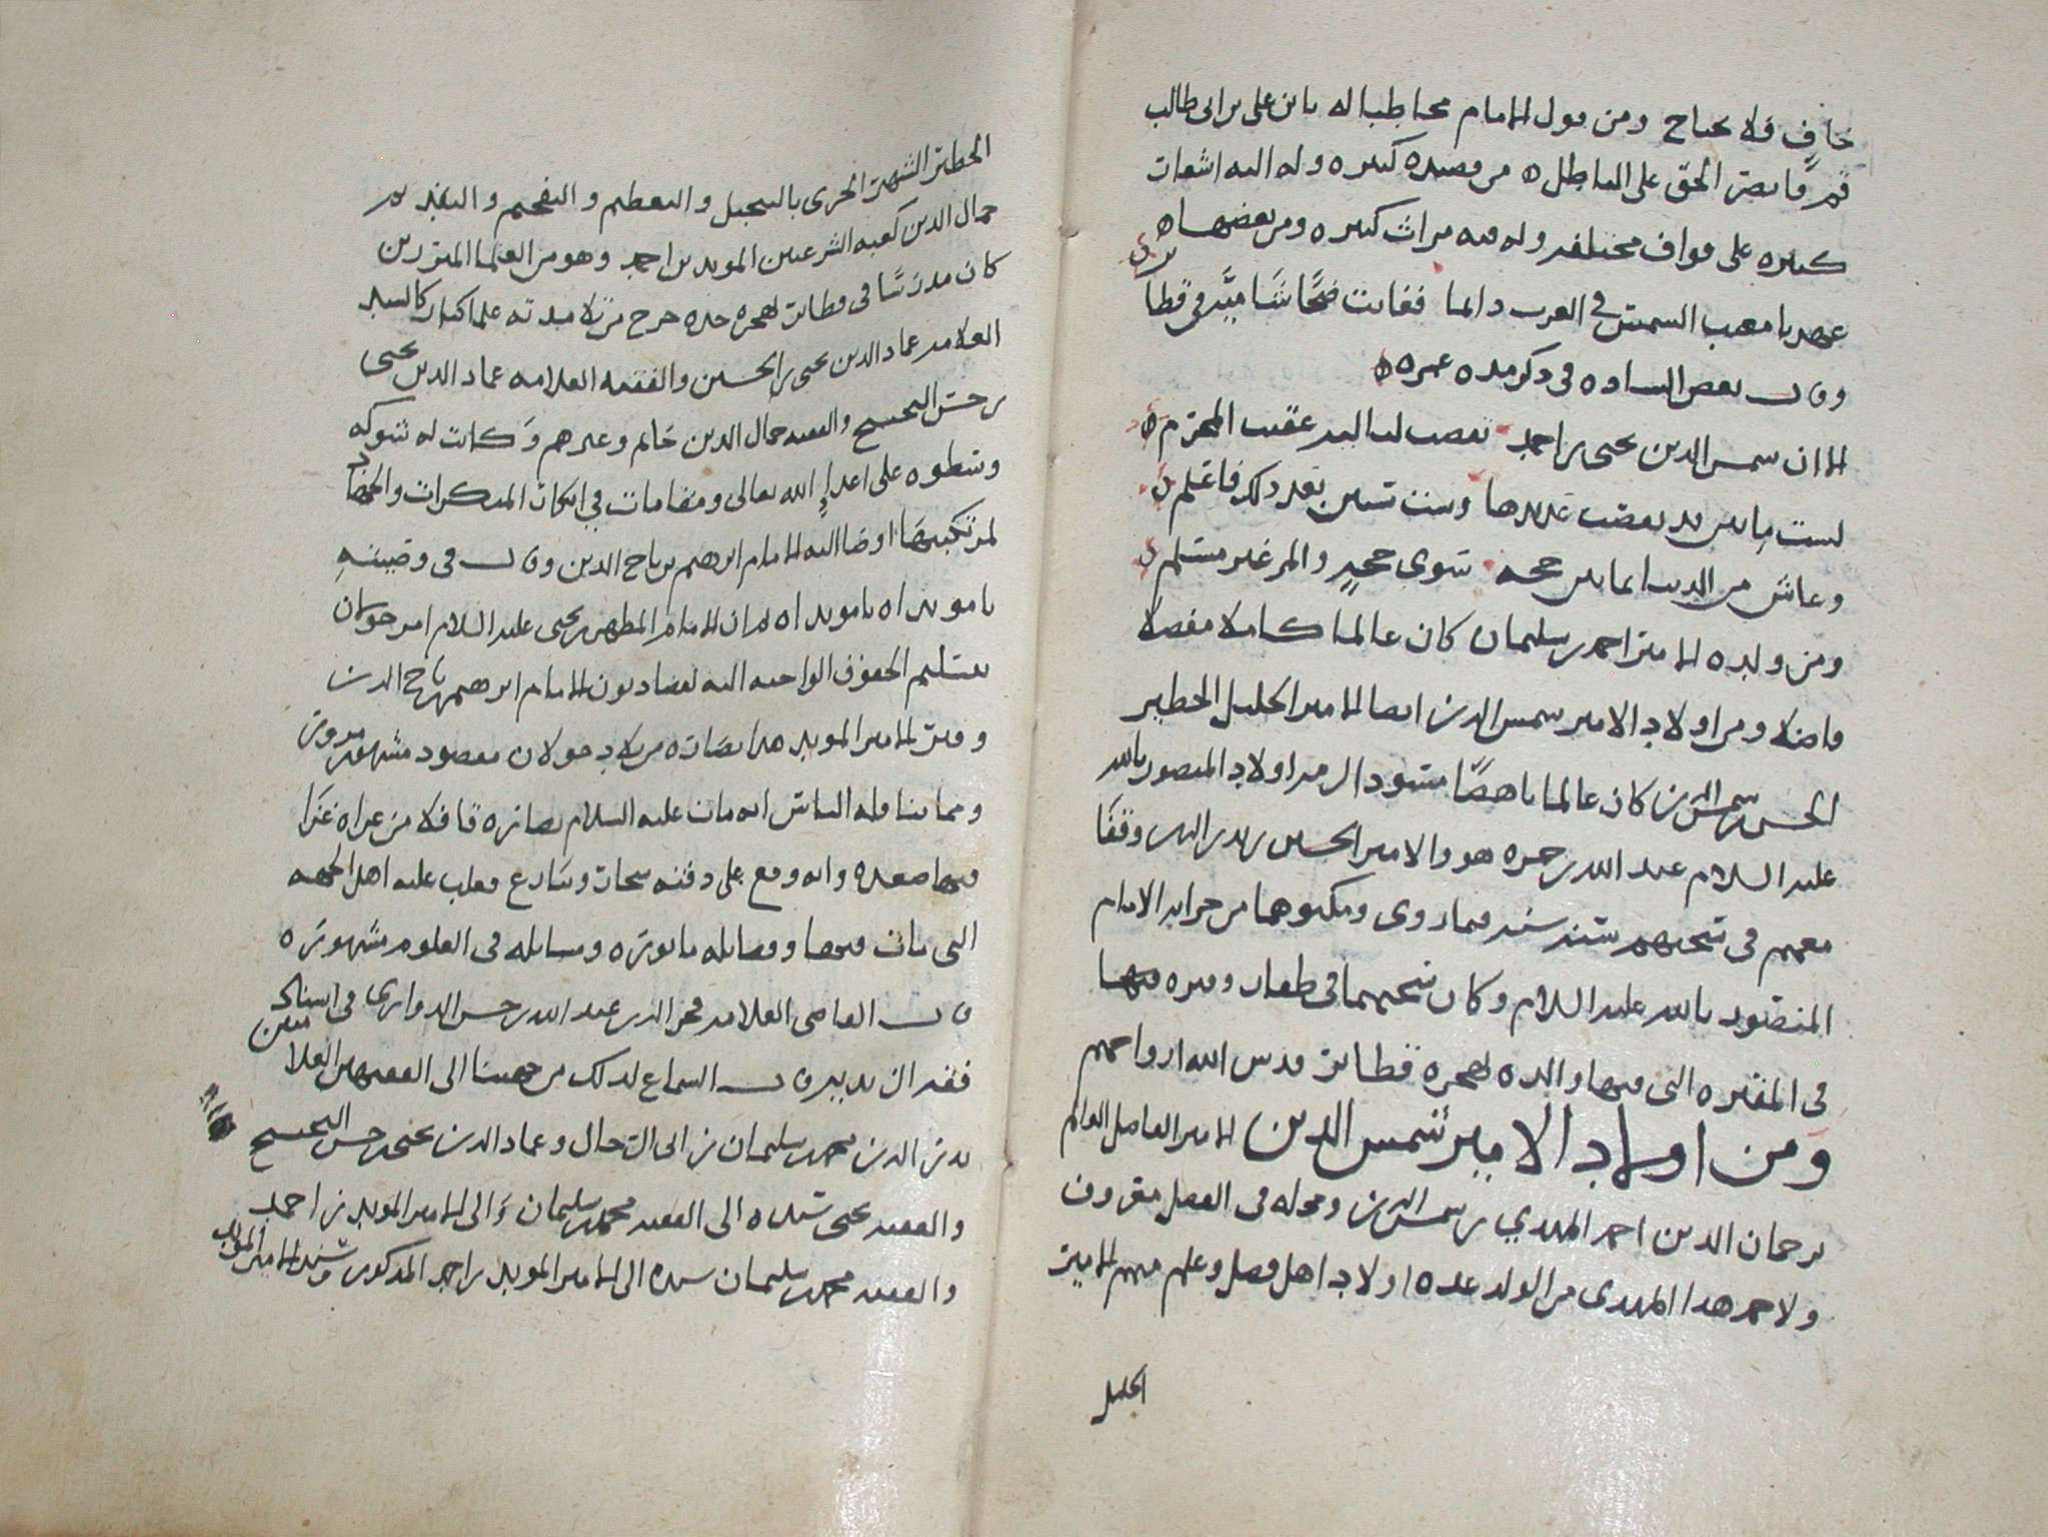 خافٍ فلا يحتاج ومن قول الامام مخاطبا له يابن علي بن ابي طالب
قم فانصر الحق على الباطل ه من قصيده كبيره وله اليه اشعارت
كثيره على قواف مختلفه وله فيه مراث كثيره ومن بعضها ه
عهدنا مغيب الشمس في الغرب دائما فغابت ضحًا شاميَّه في قطا بر
وقال بعض الساده في ذكر مدة عمره ه
الا ان شمس الدين يحيى بن احمد تقضت لياليه عقيب المحرم ه
لست مايين قد تقضت عديدها وست سنين بعد ذلك فاعلم
وعاش من الدنيا ثمانين حجه سوى حجةٍ والمر غير مسلم
ومن ولده الامير احمد بن سليمان كان عالما كاملا مفضلا
فاضلا ومن اولاد الامير شمس الدين ايضا الامير الجليل الخطير
الحسن بن شمس الدين كان عالما ناهضًا متشددا اسر مع اولاد المنصور بالله
عليه السلام عبد الله بن حمزه هو والامير الحسين بن بدر الدين وقفا
معهم في سجنهم ستة سنه فيما روى وفكوهما من جرايد الامام
المنصور بالله عليه السلام وكان سجنهما في ظفار وقبره فيها
في المقبره التي فيها والده بهجرة قطابر قدس الله ارواحهم
ومن اولاد الامير شمس الدين الامير الفاضل العالم
ترجمان الدين احمد المهدي بن شمس الدين ومحله في الفضل معروف
ولاحمد هذا المهدي من الولد عدة اولاد اهل فضل وعلم منهم الامير
الجليل
الخطير الشهير الحري بالتبجيل والتعظيم والتفخيم والتقدير
جمال الدين كعبه الشرعيين المويد بن احمد وهو من العلما المبرزين
كان مدرسًا في قطابر بهجره جده خرج من تلامدته علما كبار كالسيد
العلامه عماد الدين يحيى بن الحسين والفقيه العلامه عماد الدين يحيى
بن حسن البحيبح والفقيه جمال الدين حاتم وغيرهم وكانت له شوكه
وسطوه على اعداءِ الله تعالى ومقامات في انكار المنكرات والجهاد
لمرتكبيها اوصا اليه الامام ابرهيم بن تاج الدين وقال في وصيته
يا مويداه يا مويداه ثم ان الامام المطهر بن يحيى عليه السلام امر خولان
بتسليم الحقوق الواجبه اليه لقضا ديون الامام ابرهيم بن تاج الدين
وقبر الامير المويد هذا بصارة من بلاد خولان مقصود مشهور مزور
ومما يتناوله الناس انه مات عليه السلام بصاره قافلا من غزاه غزا
فيها صعده وانه وقع على دفنه سحار وتنازع فغلب عليه اهل الجهه
التي مات فيها وفضائله ماثوره ومسايله في العلوم مشهوره
قال القاضي العلامه فخر الدين عبد الله بن حسن الدواري في اسناد
فقه ال زيد بن علي قال السماع لذلك من جهتنا الى الفقيهين العلامتين
بدر الدين محمد بن سليمان بن ابي الرحال وعماد الدين يحيى بن حسن البحيبح
والفقيه يحيى سنده الى الفقيه محمد بن سليمان والى الامير المويد بن احمد
والفقيه محمد بن سليمان سنده الى الامير المويد بن احمد المذكور وسند الامير المويد